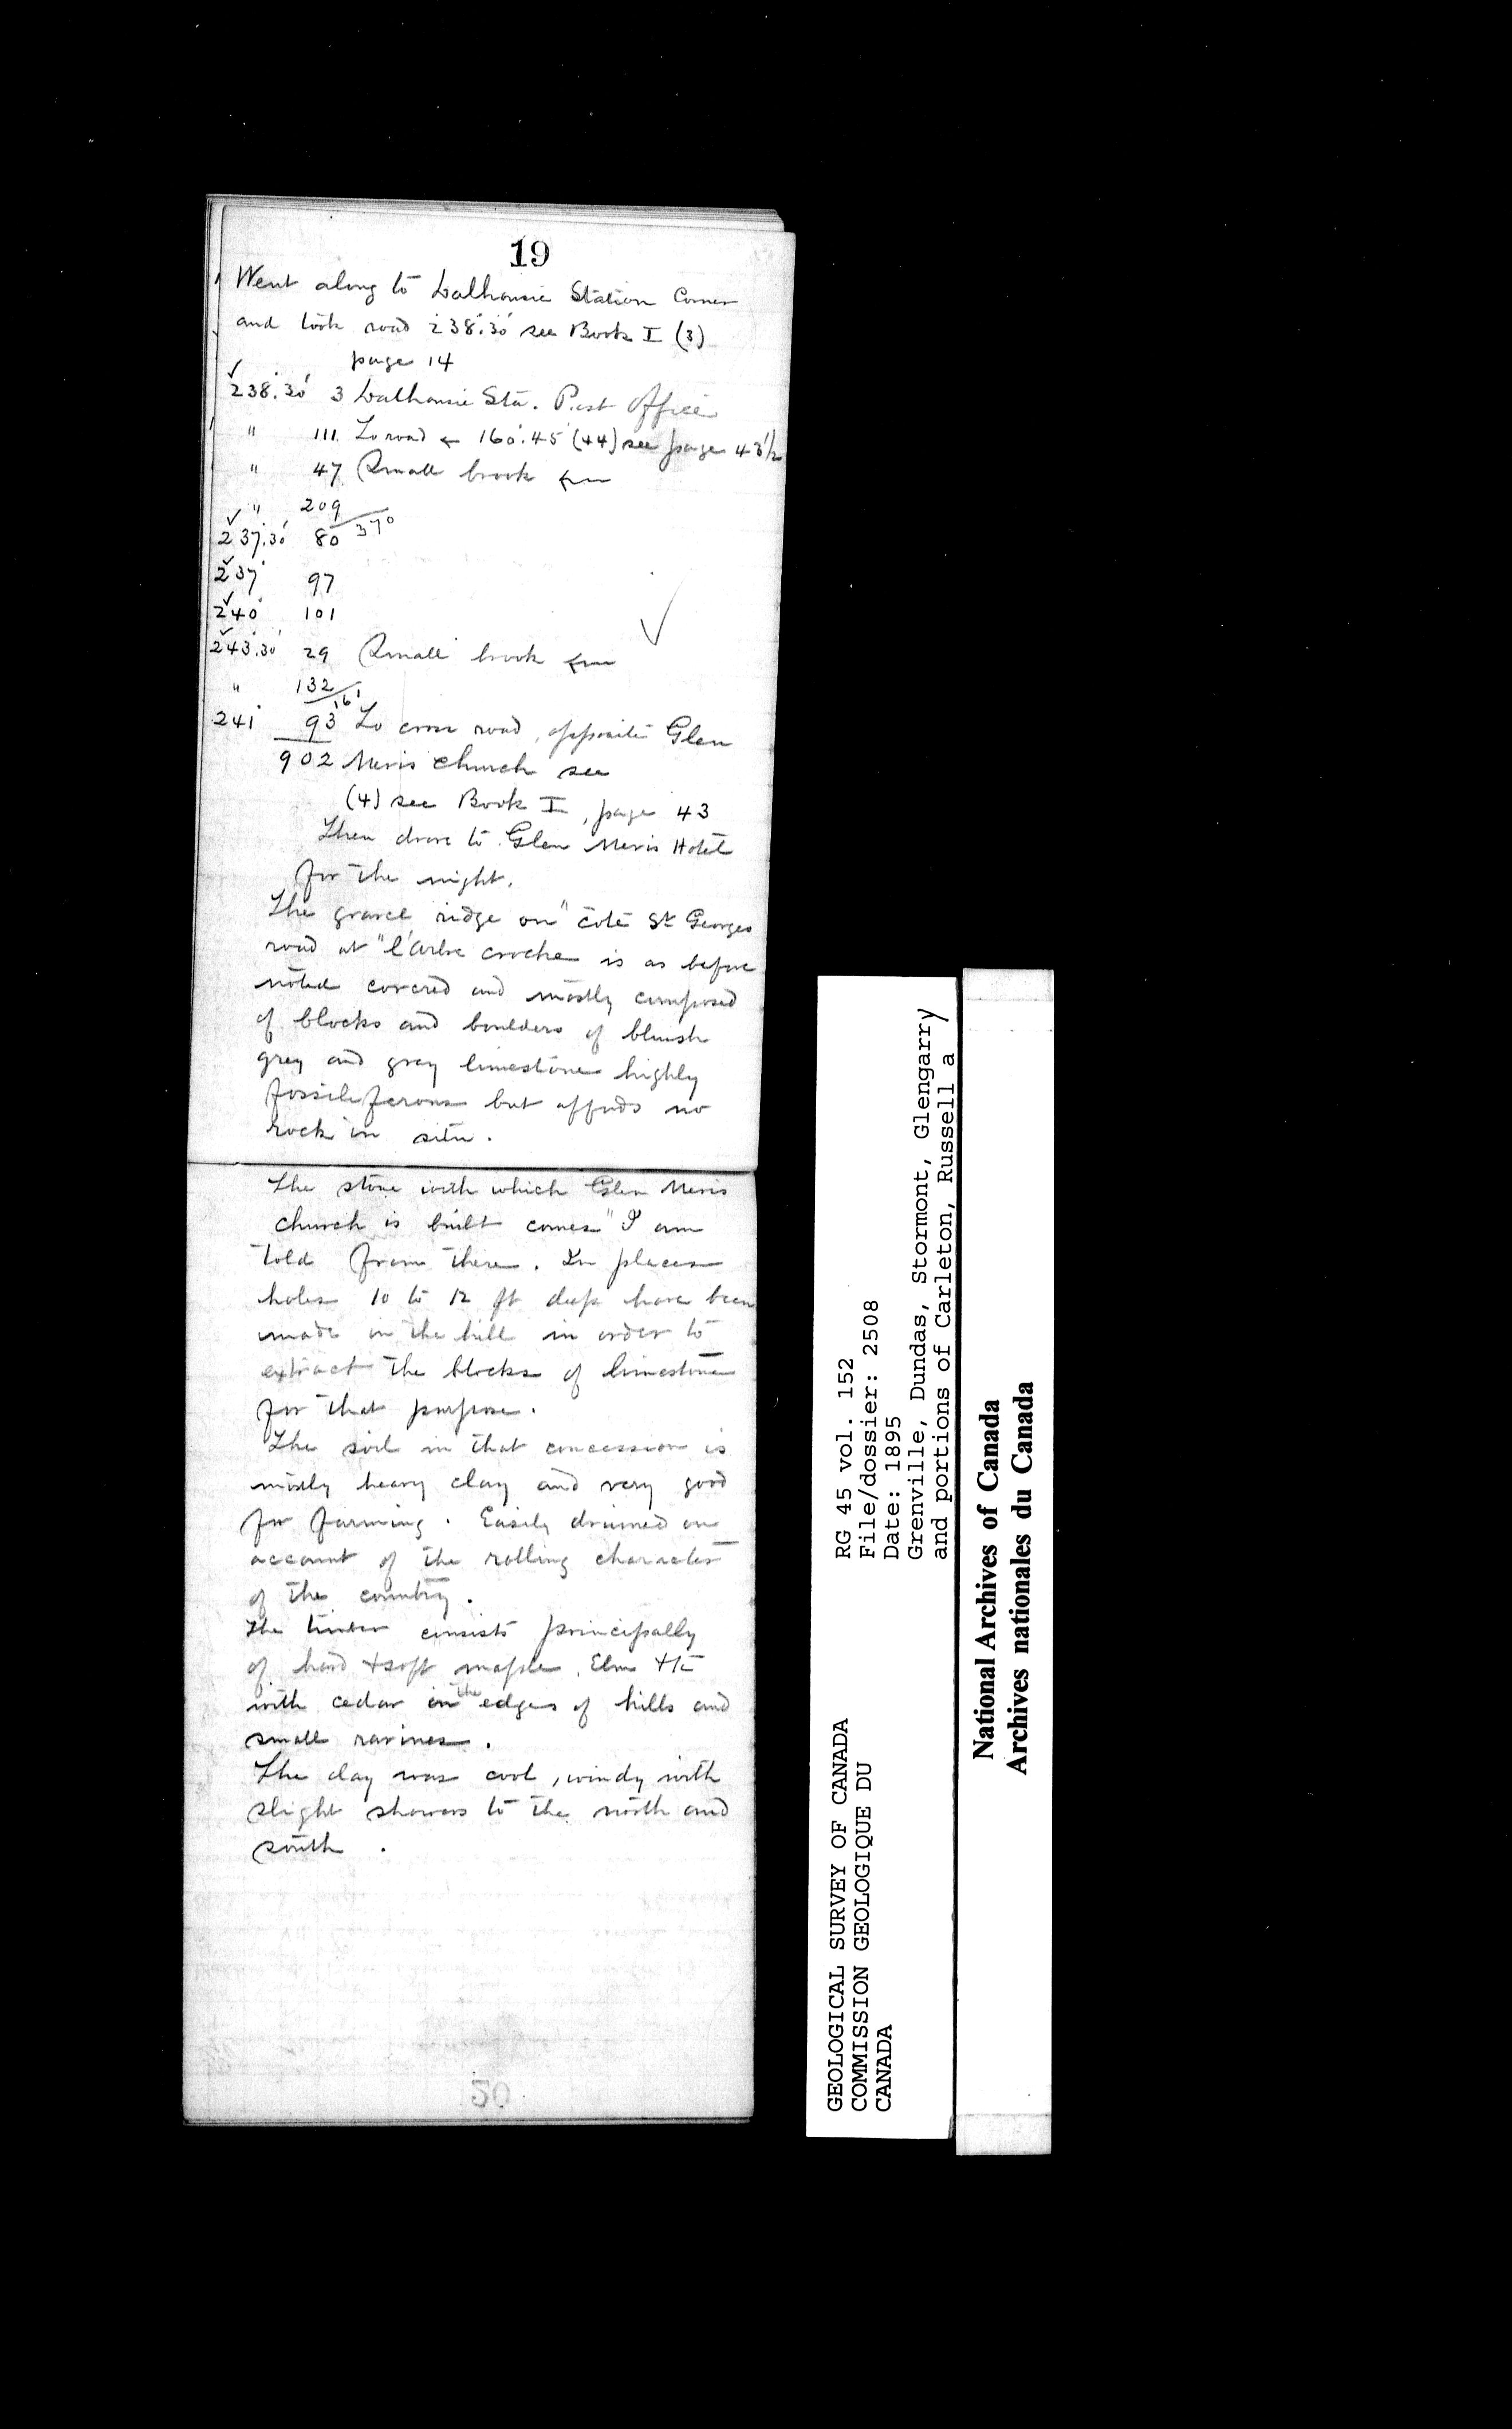 19
Went along to Dalhousie Station Corner
and took road 238°.30' see Book I (3)
page 14
238°.30' 3 Dalhousie Sta. Post Office
" 111 To road ← 160°.45' (44) see page 43 1/2
" 47 Small brook ←
" 209
370
237°.30' 80
237° 97
240° 101
243°.30' 29 Small brook ←
" 132
161
241° 93 To cross road, opposite Glen
902 Nevis Church see
(4) see Book I, page 43
Then drove to Glen Nevis Hotel
for the night.
The gravel ridge on "Côté St Georges
road at "l'arbre croche is as before
noted covered and mostly composed
of blocks and boulders of bluish
grey and gray limestone highly
fossiliferous but affords no
rock in situ.
The stone with which Glen Nevis
church is built comes "I am
told from there. In places
holes 10 to 12 ft deep have been
made in the hill in order to
extract the blocks of limestone
for that purpose.
The soil in that concession is
mostly heavy clay and very good
for farming. Easily drained on
account of the rolling character
of the country.
The timber consists principally
of hard + soft maple, Elm +c
with cedar in the edges of hills and
small ravines.
The day was cool, windy with
slight showers to the north and
south.
20
GEOLOGICAL SURVEY OF CANADA
COMMISSION GEOLOGIQUE DU
CANADA
RG 45 vol. 152
File/dossier: 2508
Date: 1895
Grenville, Dundas, Stormont, Glengarry
and portions of Carleton, Russell a
National Archives of Canada
Archives nationales du Canada